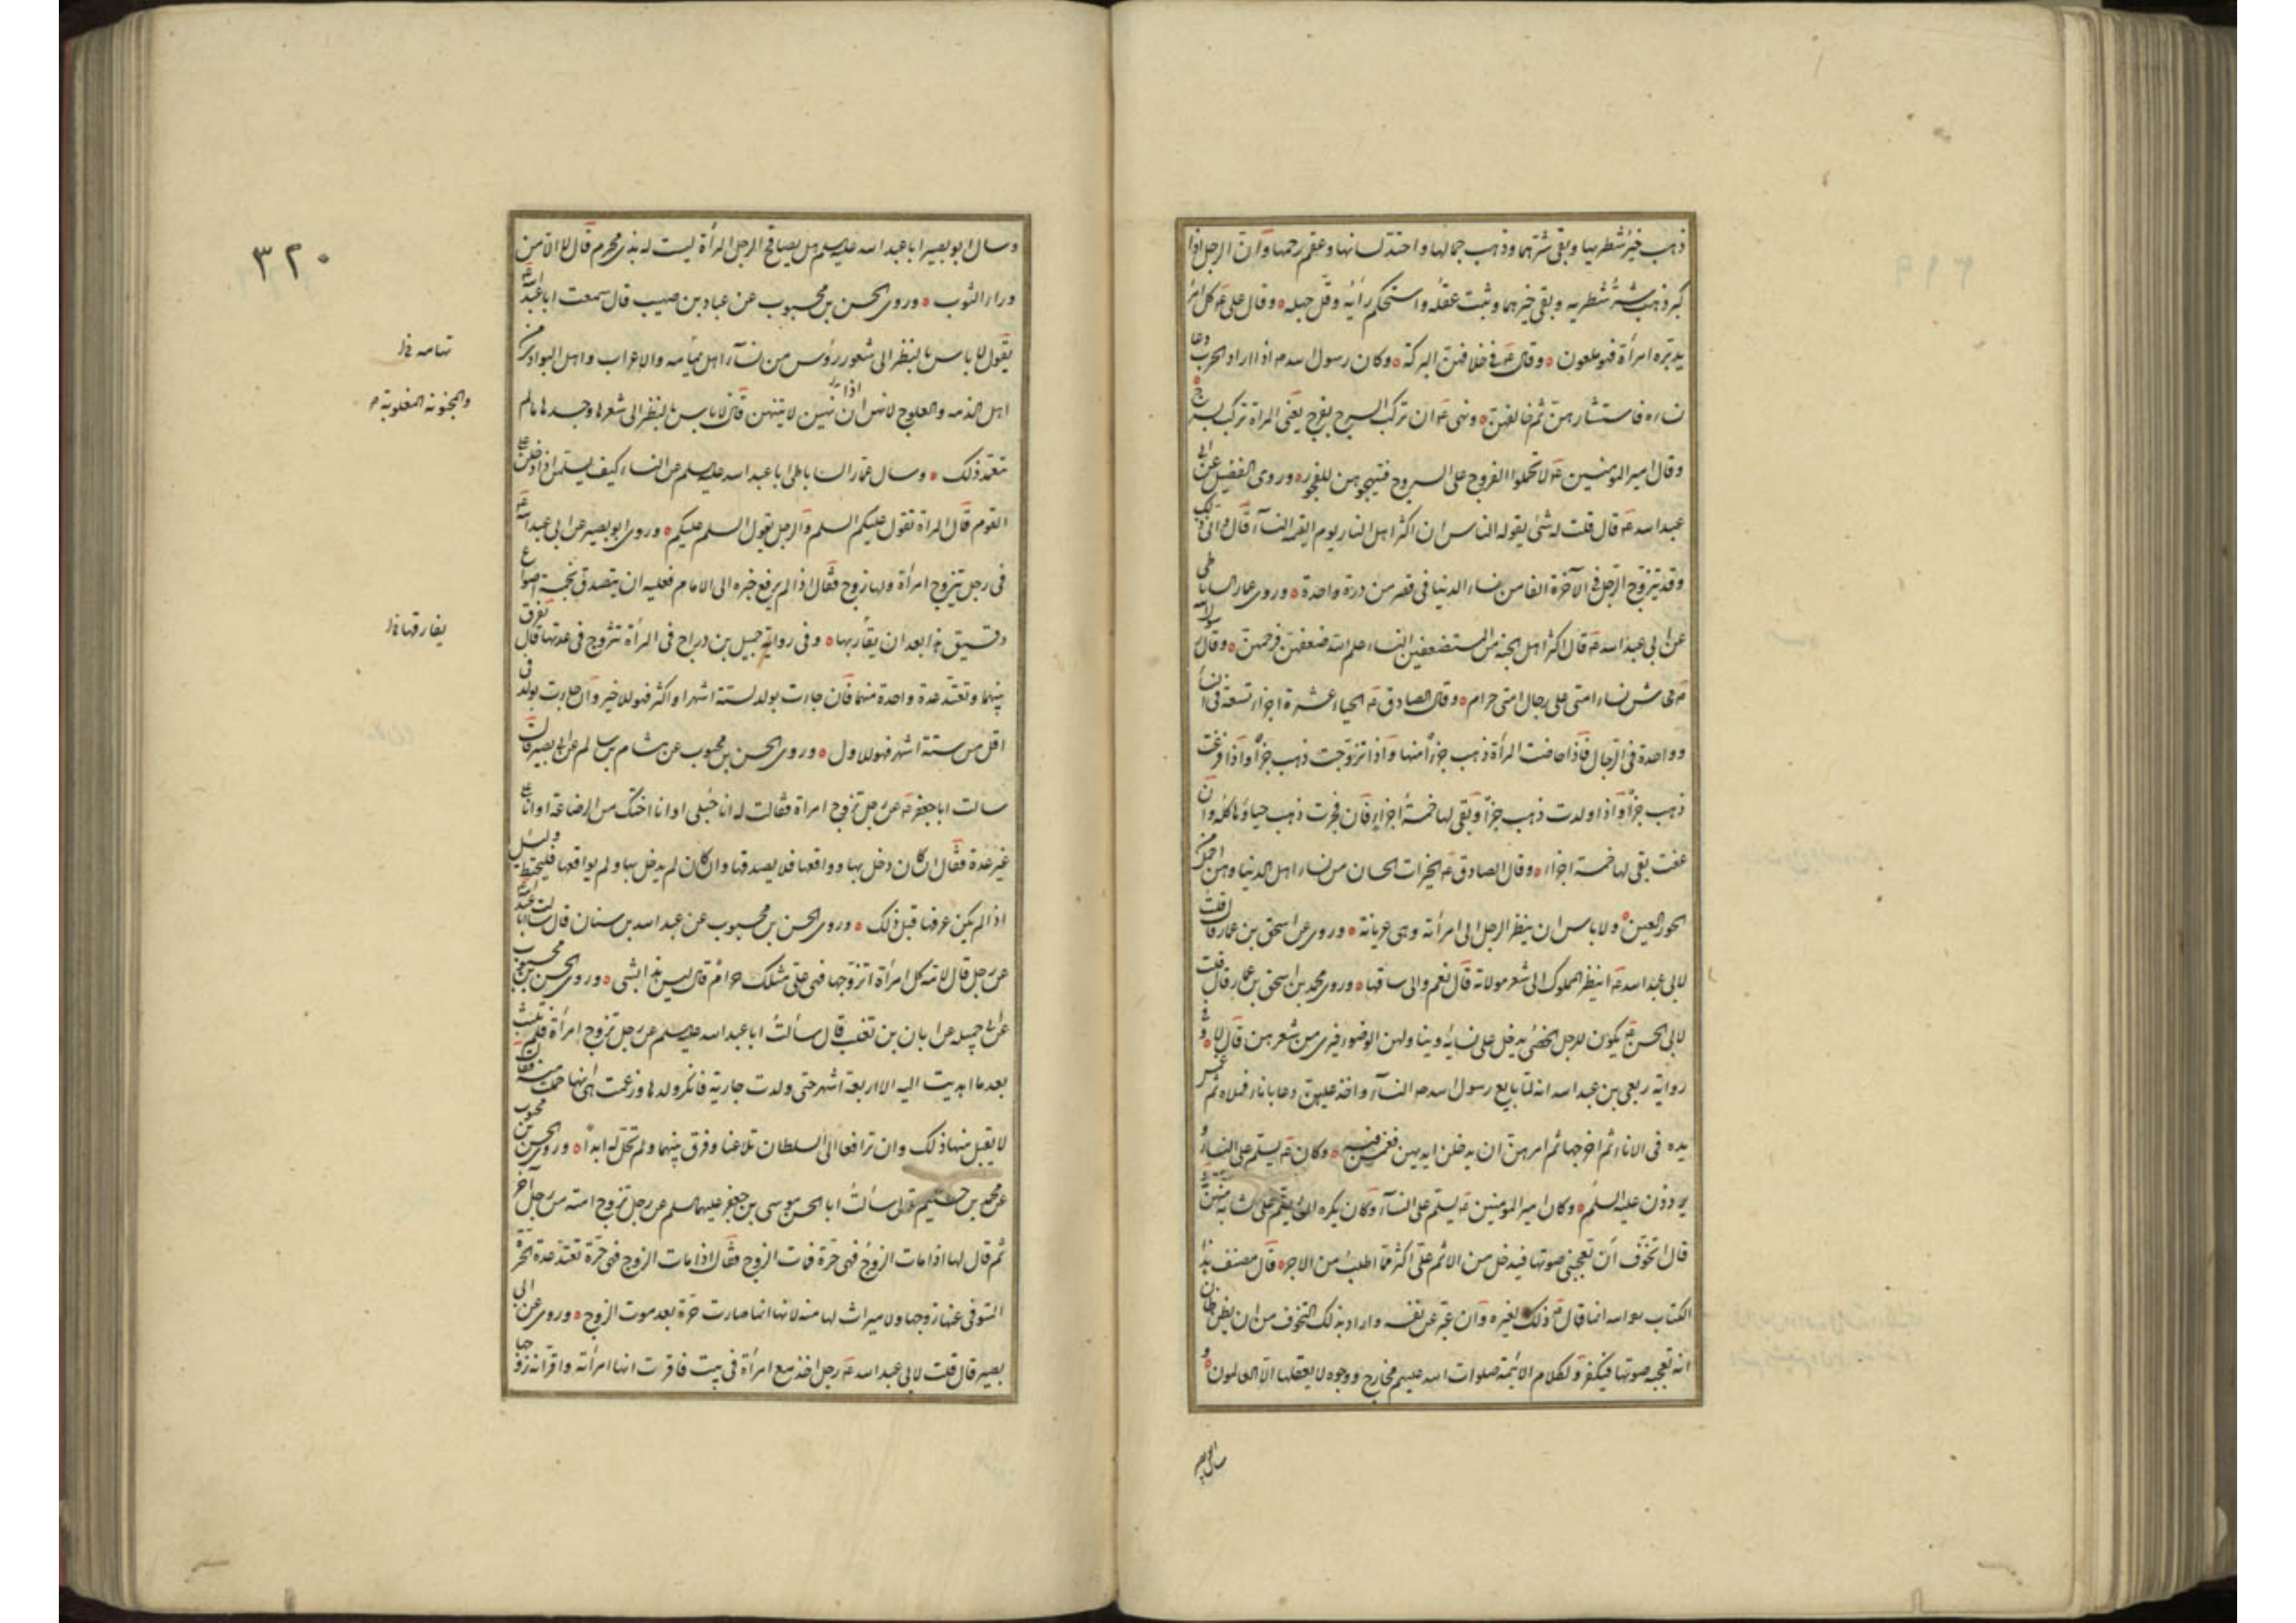 ذهب خير شطريها وبقى شرهما وذهب جمالها واحتد لسانها وعقم رحمها وان الرجل اذا
كبر ذهب شر شطريه وبقى خيرهما وثبت عقله واستحكم رأيه وقل جهله وقال على ع كل امر
يدبره امرأة فهو ملعون وقال ع فى خلافهن البركة وكان رسول الله ص اذا اراد الحرب دعا
نساءه فاستشارهن ثم خالفهن ونهى ع ان تركب السرج بفرج يعنى المرأة تركب بسرج
وقال امير المومنين ع لا تحملوا الفروج على السروج فتهيجوهن للفجور وروى الفضيل عن ابى
عبد الله ع قال قلت له شئ يقوله الناس ان اكثر اهل النار يوم القيمة النساء قال وانى ذلك
وقد يتزوج الرجل فى الآخرة الفا من نساء الدنيا فى قصر من درة واحدة وروى عمار الساباطى
عن ابى عبد الله ع قال اكثر اهل الجنة من المستضعفين النساء علم الله ضعفهن فرحمهن وقال رسول الله
ص محاش نساء امتى على رجال امتى حرام وقال الصادق ع الحياء عشرة اجزاء تسعة فى النساء
وواحدة فى الرجال فاذا حاضت المرأة ذهب جزء منها واذا تزوجت ذهب جزء واذا افترعت
ذهب جزء واذا ولدت ذهب جزء وبقى لها خمسة اجزاء فان فجرت ذهب حياؤها كله وان
عفت بقى لها خمسة اجزاء وقال الصادق ع الخيرات الحسان من نساء اهل الدنيا وهن اجمل من
الحور العين ولا باس ان ينظر الرجل الى امرأته وهى عريانة وروى عن اسحق بن عمار قال قلت
لابى عبد الله ع اينظر المملوك الى شعر مولاته قال نعم والى ساقها وروى محمد بن اسحق بن عمار قال قلت
لابى الحسن ع يكون للرجل الخصى يدخل على نسائه ويناولهن الوضوء فيرى من شعرهن قال لا وفى
رواية ربعى بن عبد الله انه لما بايع رسول الله ص النساء واخذ عليهن دعا باناء فملاه ثم غمس
يده فى الاناء ثم اخرجها ثم امرهن ان يدخلن ايديهن فغمسن فيه وكان ع يسلم على النساء و
يرددن عليه السلم وكان امير المومنين ع يسلم على النساء وكان يكره ان يسلم على الشابة منهن
قال اتخوف ان تعجبنى صوتها فيدخل من الاثم على اكثر مما اطلب من الاجر قال مصنف هذا
الكتاب ره انما قال ع ذلك لغيره وان عبر عن نفسه واراد بذلك التخوف من ان يظن ظان
انه تعجبه صوتها فيكفر ولكلام الائمة صلوات الله عليهم مخارج ووجوه لا يعقلها الا العالمون و
سال ابو بصير
٣٢٠
وسال ابو بصير ابا عبد الله عليه السلم هل يصافح الرجل المرأة ليست له بذى محرم قال لا الا من
وراء الثوب وروى الحسن بن محبوب عن عباد بن صهيب قال سمعت ابا عبد الله ع
يقول لا باس بالنظر الى شعور رؤس من نساء اهل يمامه والاعراب واهل البوادى من
تهامه خ ل
اهل الذمه والعلوج لانهن ان اذا نهين لا ينتهين قال لا باس بالنظر الى شعرها وجسدها ما لم
والمجنونة المغلوبة
يتعمد ذلك وسال عمار الساباطى ابا عبد الله عليه السلم عن النساء كيف يسلمن اذا دخلن على
القوم قال المرأة تقول عليكم السلم والرجل يقول السلم عليكم وروى ابو بصير عن ابى عبد الله ع
فى رجل يتزوج امرأة ولها زوج فقال اذا لم يرفع خبره الى الامام فعليه ان يتصدق بخمسة اصواع
دقيق هذا بعد ان يقاربها وفى رواية جميل بن دراج فى المرأة تتزوج فى عدتها قال يفرق
يفارقها خ ل
بينهما وتعتد عدة واحدة منهما فان جاءت بولد لستة اشهر او اكثر فهو للاخير وان جاءت بولد فى
اقل من ستة اشهر فهو للاول وروى الحسن بن محبوب عن هشام بن سالم عن ابى بصير قال
سالت ابا جعفر ع عن رجل تزوج امرأة فقالت له انا حبلى او انا اختك من الرضاعة او انا على
غير عدة فقال ان كان دخل بها وواقعها فلا يصدقها وان كان لم يدخل بها ولم يواقعها فليحتط وليسل
اذا لم يكن عرفها قبل ذلك وروى الحسن بن محبوب عن عبد الله بن سنان قال سالت ابا عبد الله ع
عن رجل قال لامه كل امرأة اتزوجها فهى على مثلك حرام قال ليس هذا بشى وروى الحسن بن محبوب
عن ابى جميله عن ابان بن تغلب قال سألت ابا عبد الله عليه السلم عن رجل تزوج امرأة فلم تلبث
بعد ما اهديت اليه الا اربعة اشهر حتى ولدت جارية فانكر ولدها وزعمت هى انها حملت منه فقال
لا يقبل منها ذلك وان ترافعا الى السلطان تلاعنا وفرق بينهما ولم تحل له ابدا وروى الحسن بن محبوب
عن محمد بن حكيم قال سألت ابا الحسن موسى بن جعفر عليهما السلم عن رجل تزوج امته من رجل آخر
ثم قال لها اذا مات الزوج فهى حرة فمات الزوج فقال اذا مات الزوج فهى حرة تعتد عدة الحرة
المتوفى عنها زوجها ولا ميراث لها منه لانها انما صارت حرة بعد موت الزوج وروى عن ابى
بصير قال قلت لابى عبد الله ع رجل اخذ مع امرأة فى بيت فاقرت انها امرأته واقر انه زوجها